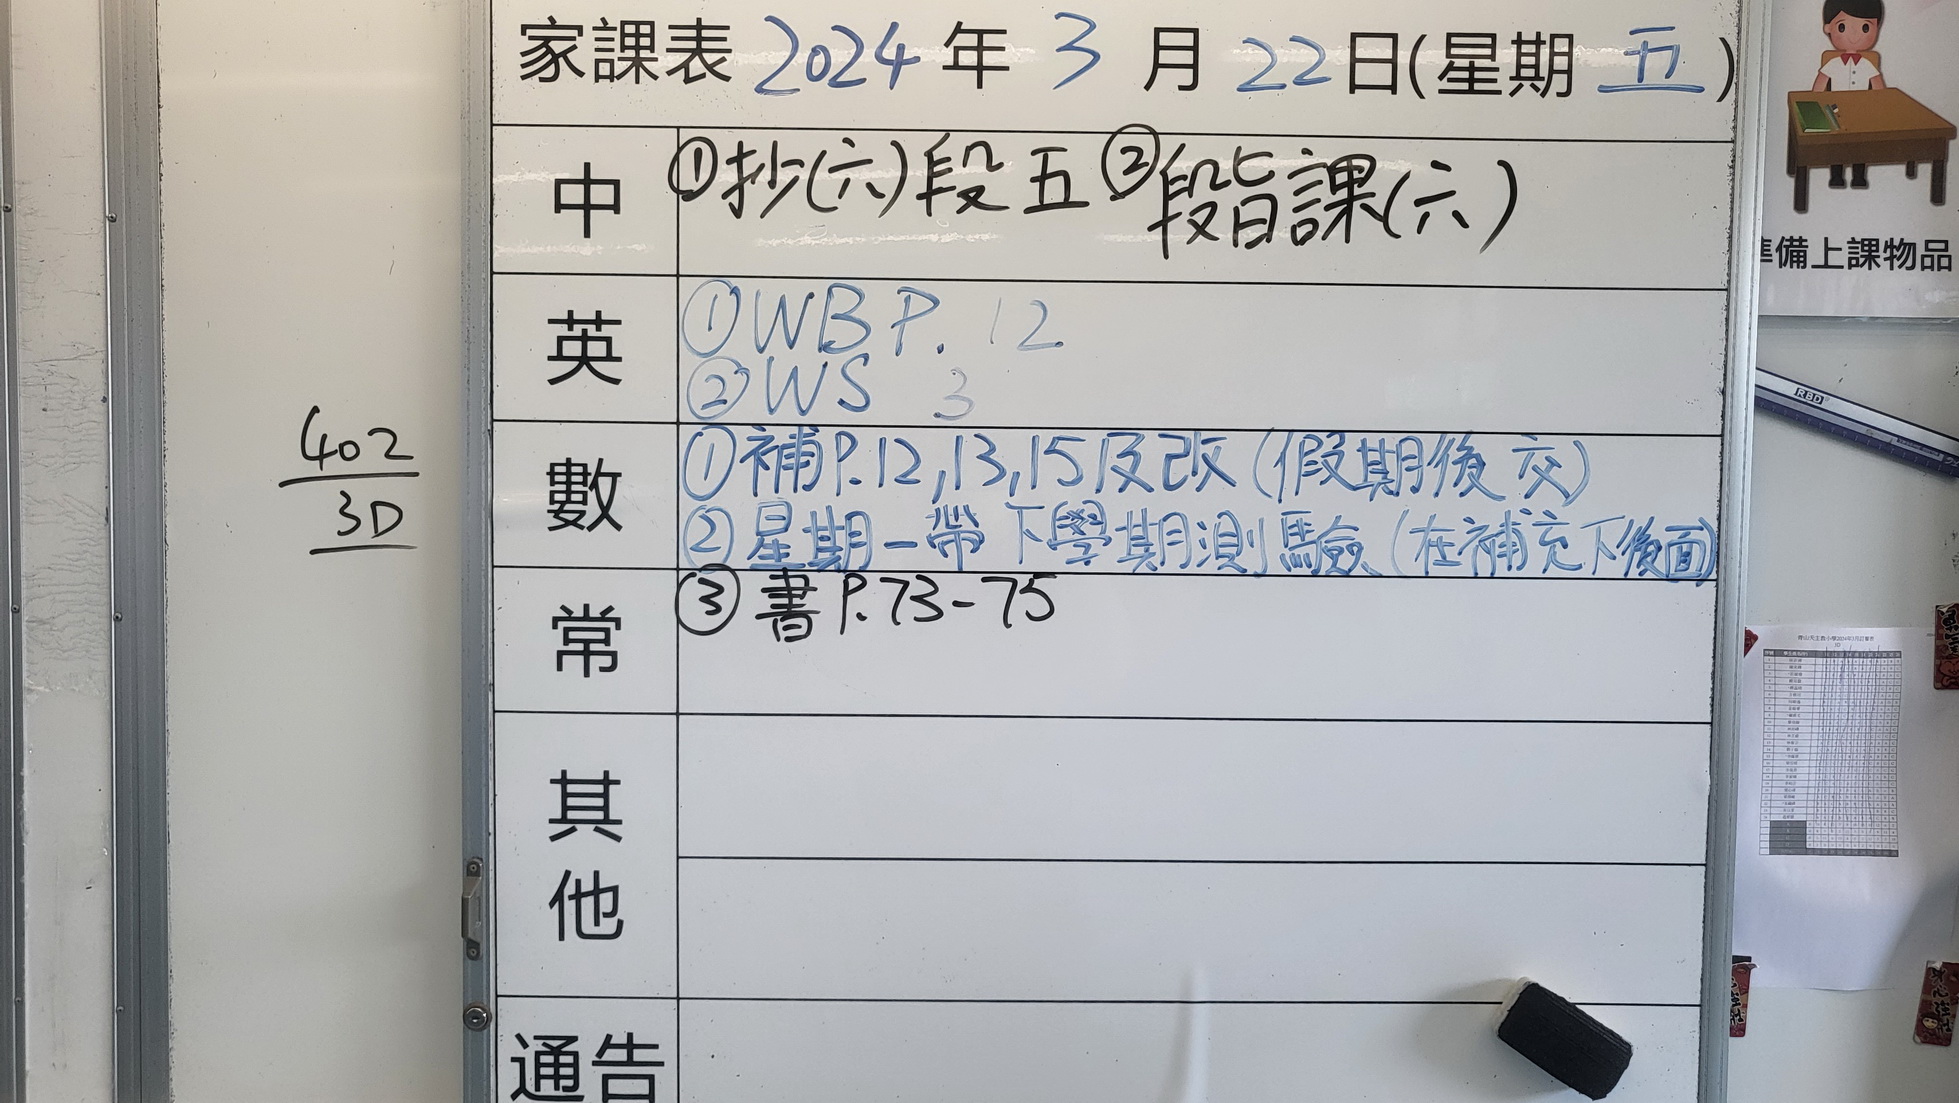 家課表 2024 年 3 月 22 日(星期 五)
中 ①抄(六)段五 ②段旨課(六)
英 ①WB P. 12
②WS 3
數 ①補P.12,13,15及改(假期後交)
②星期一帶下學期測驗(在補充下後面)
常 ③書P.73-75
其他
通告
402
3D
準備上課物品
RBD